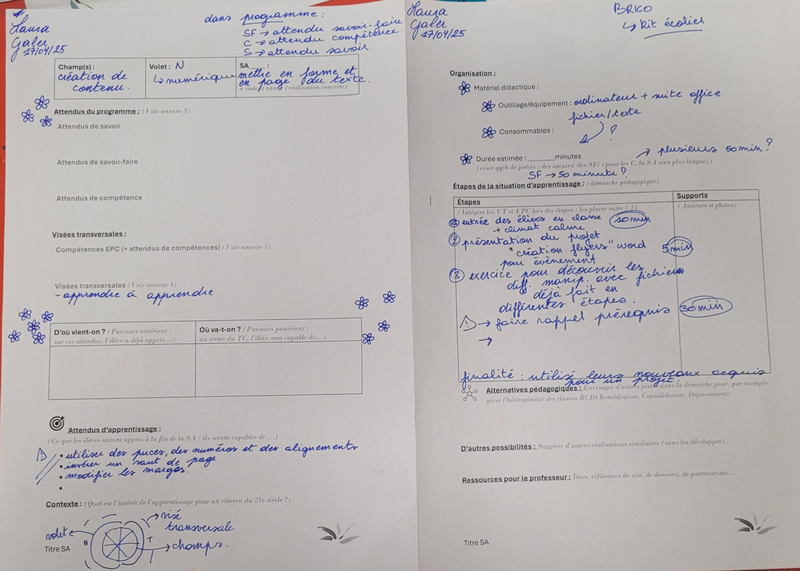 Laura
Galer
17/04/25
dans programme :
SF → attendu savoir-faire
C → attendu compétence
S → attendu savoir
Champ(s) :
création de
contenu.
Volet : N
↳ numérique
SA
mettre en forme et
en page du texte.
Attendus du programme : ( Voir annexe 3)
Attendus de savoir
Attendus de savoir-faire
Attendus de compétence
Visées transversales :
Compétences EPC (+ attendus de compétences) ( Voir annexe 5)
Visées transversales ( Voir annexe 4)
- apprendre à apprendre
D'où vient-on ? ( Parcours antérieur :
sur ces attendus, l'élève a déjà appris…)
Où va-t-on ? ( Parcours postérieur :
au terme du TC, l'élève sera capable de…)
Attendus d'apprentissage :
( Ce que les élèves auront appris à la fin de la SA : ils seront capables de …)
• utiliser des puces, des numéros et des alignements
• insérer un saut de page
• modifier les marges.
•
Contexte : (Quel est l'intérêt de l'apprentissage pour un citoyen du 21e siècle ?)
volet
N
T
→ visé
transversale
→ champs.
Titre SA
Laura
Galer
17/04/25
BRICO
↳ kit écolier
Organisation :
Matériel didactique :
Outillage/équipement : ordinateur + suite office
fichier/texte
Consommables :
?
Durée estimée : ______minutes
→ plusieurs 50 min ?
SF → 50 minute ?
Étapes de la situation d'apprentissage : (démarche pédagogique)
Étapes
Supports
( Intégrer les VT et EPC lors des étapes : les placer entre [ ] )
( Annexes et photos)
① entrée des élèves en classe
+ climat calme
10 min
② présentation du projet
"création flyers" word
pour évènement
5 min
③ exercice pour découvrir les
diff. manip. avec fichier
déjà fait en
différentes étapes.
→ faire rappel prérequis
30 min
→
finalité : utilisé leurs nouveaux acquis
pour un projet.
Alternatives pédagogiques : Envisager d'autres pistes dans la démarche pour, par exemple,
gérer l'hétérogénéité des classes RCD( Remédiation, Consolidation, Dépassement)
D'autres possibilités : Suggérer d'autres réalisations similaires ( sans les développer).
Ressources pour le professeur : Docs, références de site, de dossiers, de partenariats…
Titre SA